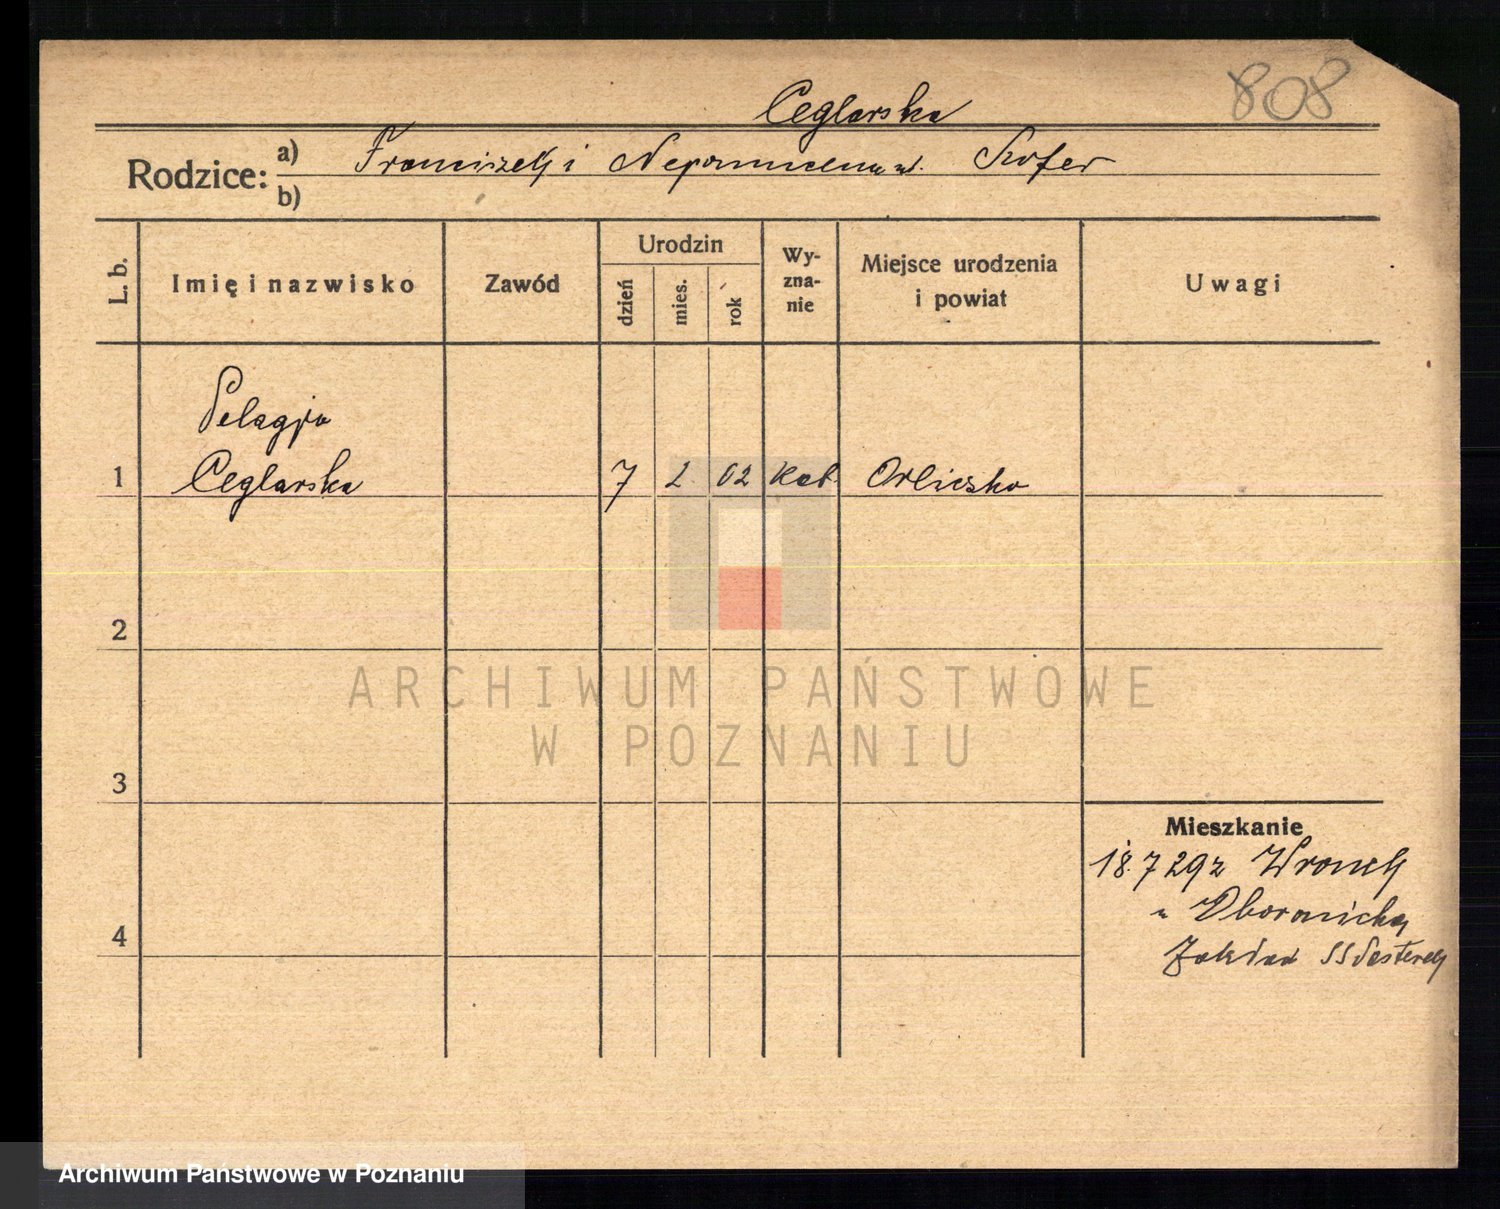 808
Ceglarska
Rodzice: a) Franciszek i Nepomucena
b)
L. b.
Imię i nazwisko
Zawód
Urodzin
dzień
mies.
rok
Wy-
zna-
nie
Miejsce urodzenia
i powiat
Uwagi
Pelagja
1 Ceglarska 7 2 02 kat. Orliczko
2
3
4
Mieszkanie
18.7 29 z Wronek
Zakład SS
ARCHIWUM PAŃSTWOWE
W POZNANIU
Archiwum Państwowe w Poznaniu